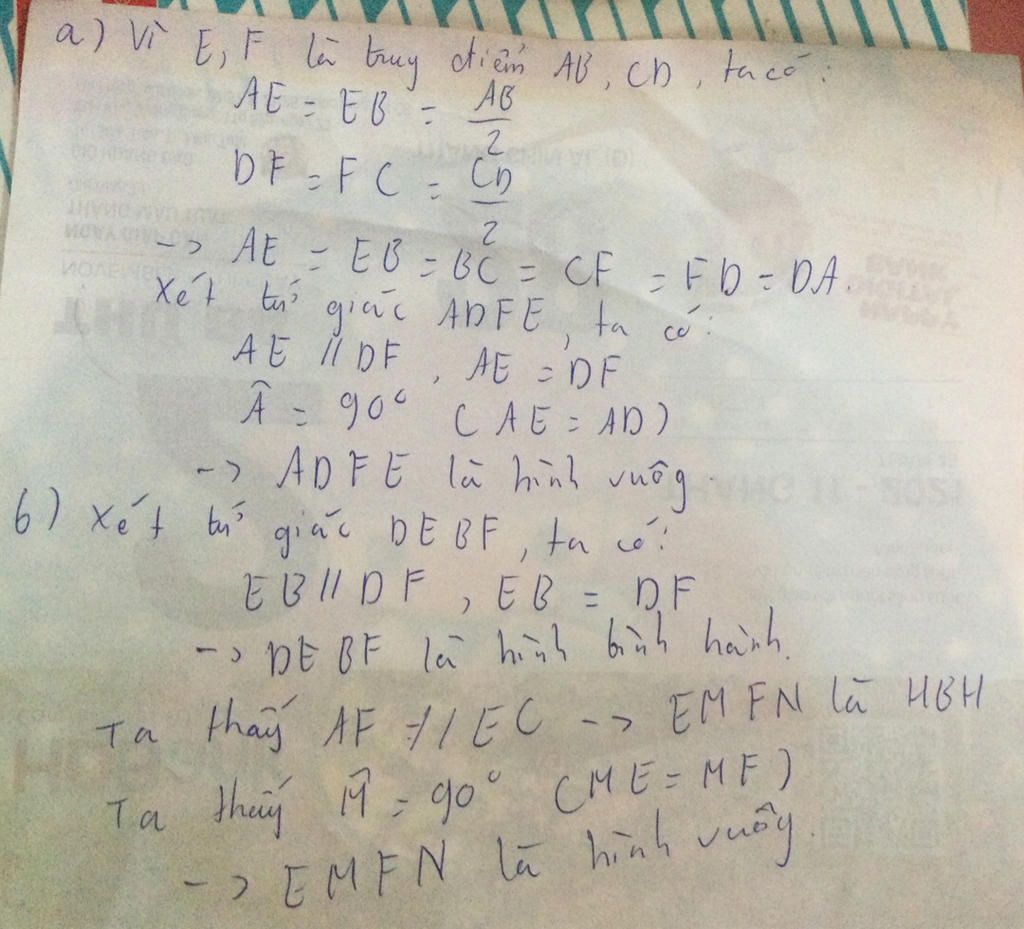 a) Vì E, F là truy điểm AB, CD, ta có:
AE = EB = AB/2
DF = FC = CD/2
-> AE = EB = BC = CF = FD = DA.
Xét tứ giác ADFE, ta có:
AE // DF, AE = DF
Â = 90° (AE = AD)
-> ADFE là hình vuôg.
b) Xét tứ giác DEBF, ta có:
EB // DF, EB = DF
-> DEBF là hình bình hành.
Ta thấy AF // EC -> EMFN là HBH
Ta thấy M̂ = 90° (ME = MF)
-> EMFN là hình vuôg.